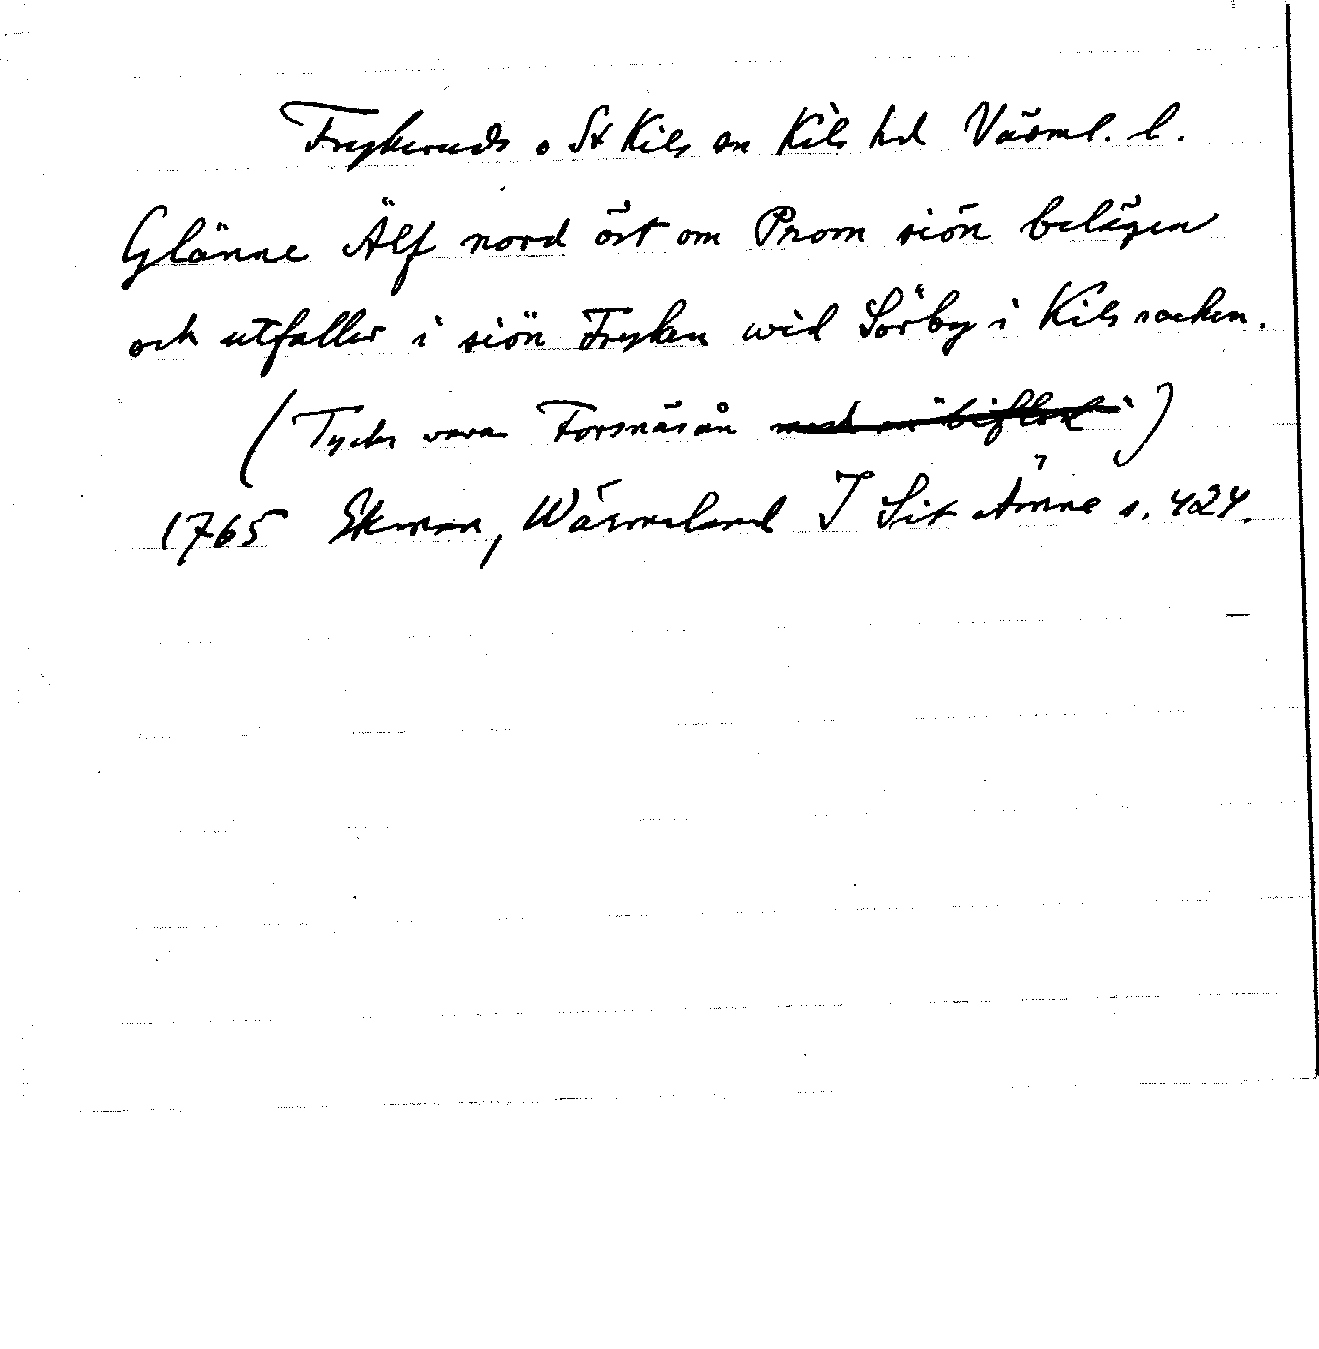 Frykeruds o St Kils sn Kils hd Värml. l.
Glänne Älf nord öst om Prom siön belägen
och utfaller i siön Fryken wid Sörby i Kils socken.
(Tycks vara Forsnäsån med en biflod)
1765 Ekman, Wärmeland I Sit Ämne s. 424.